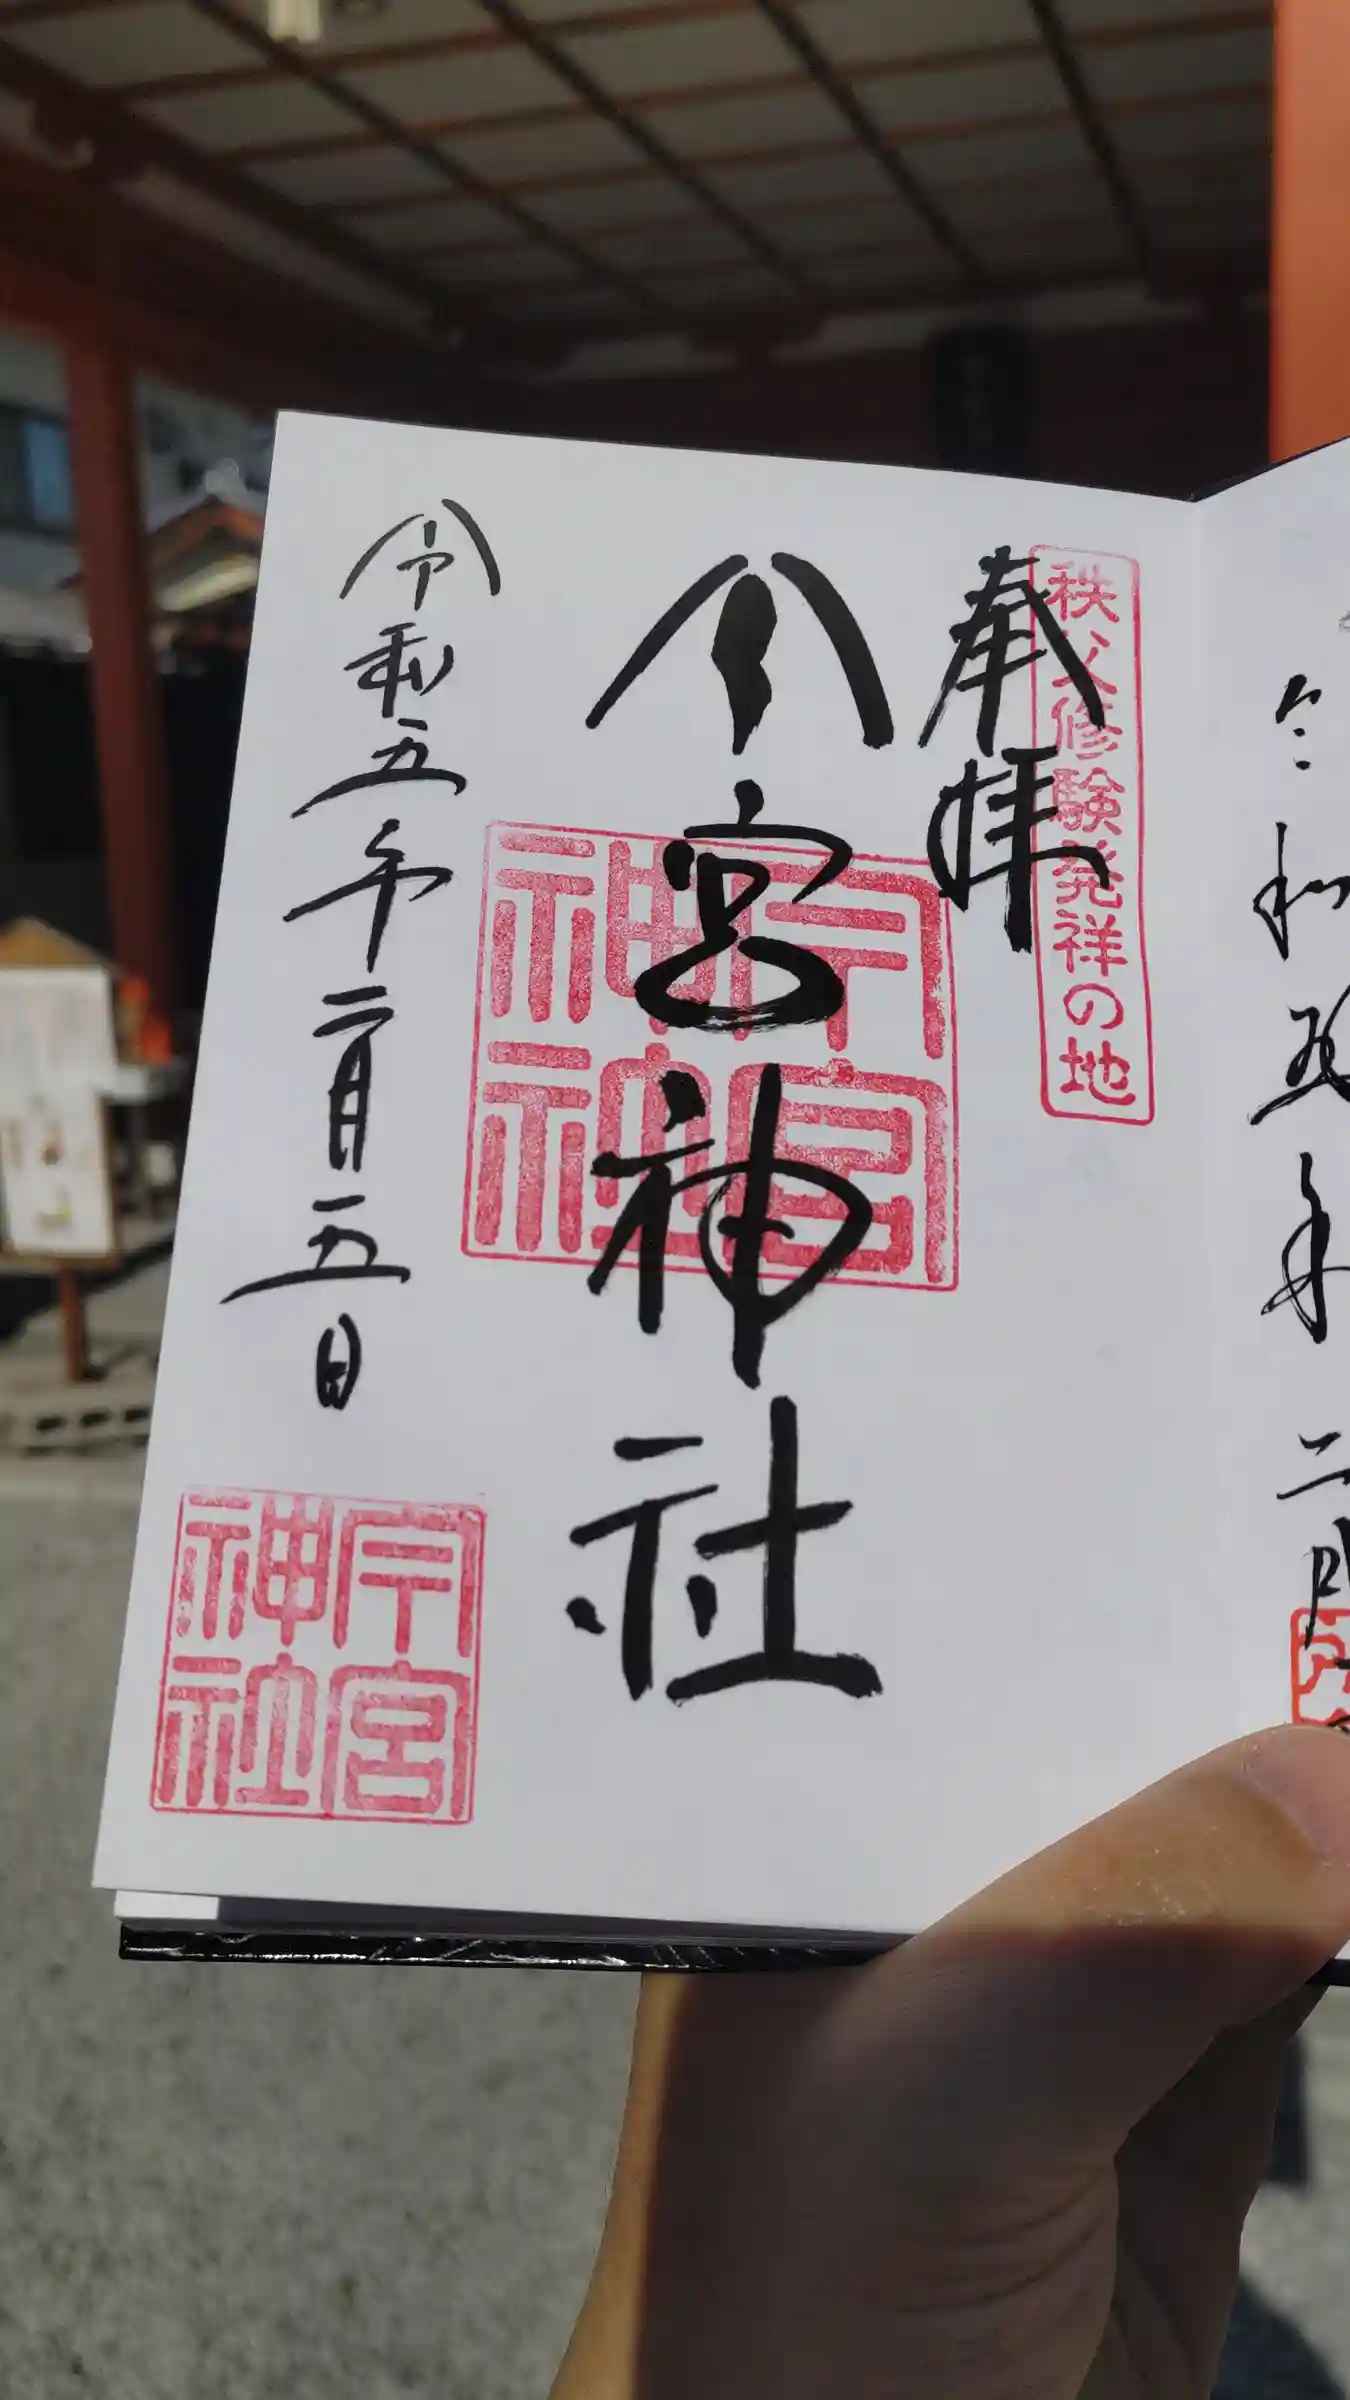 秩父修験発祥の地
奉拝
今宮神社
今宮神社
令和五年二月五日
今宮神社
令和五年二月